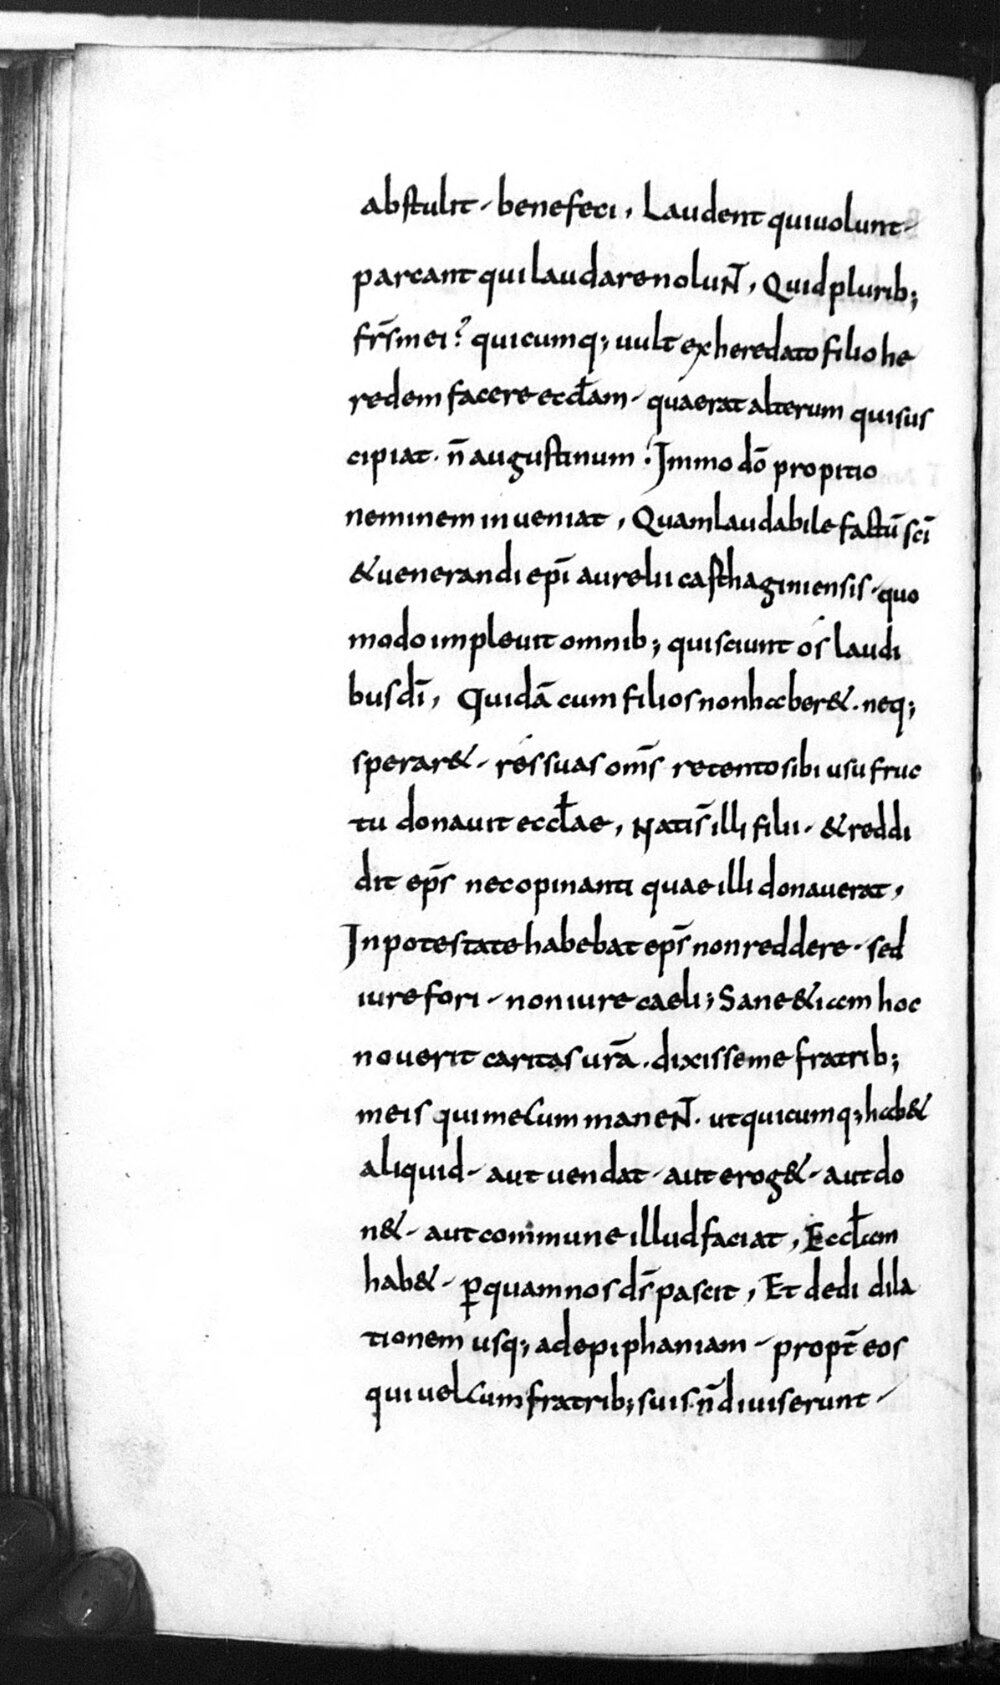 abstulit · benefeci, Laudent quiuolunt ·
parcant qui laudare noluN̄, Quid plurib;
fr̄s mei? quicumq; uult exheredato filio he
redem facere eccƚam · quaerat alterum qui sus
cipiat · n̄ augustinum · Immo dō propitio
neminem inueniat, Quam laudabile factū sc̄i
& uenerandi ep̄i aurelii casthaginiensis · quo
modo impleuit omnib; qui sciunt ós laudi
bus dī, Quidā cum filios non haber& · neq;
sperar& · rés suas om̄s retento sibi usu fruc
tu donauit eccƚae, Natis̄ illi filii · & reddi
dit ep̄s necopinanti quae illi donauerat,
In potestate habebat ep̄s non reddere · sed
iure fori · non iure caeli; Sane & iam hoc
nouerit caritas ur̄a · dixisse me fratrib;
meis qui mecum maneN̄ · ut quicumq; hab&
aliquid · aut uendat · aut erog& · aut do
n& · aut commune illud faciat, Eccƚam
hab& · ꝑ quam nos ds̄ pascit, Et dedi dila
tionem usq; ad epiphaniam · propt̄ eos
qui uel cum fratrib; suis n̄ diuiserunt ·